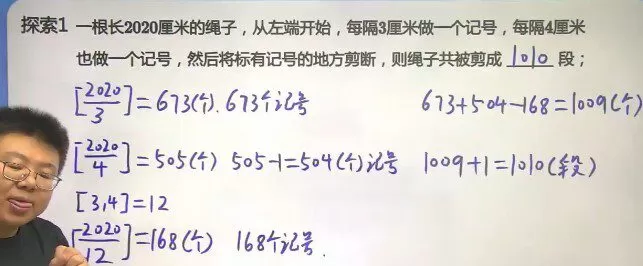 探索1 一根长2020厘米的绳子，从左端开始，每隔3厘米做一个记号，每隔4厘米
也做一个记号，然后将标有记号的地方剪断，则绳子共被剪成 1010 段；
[2020/3]=673(个). 673个记号
673+504-168=1009(个)
[2020/4]=505(个) 505-1=504(个)记号
1009+1=1010(段)
[3,4]=12
[2020/12]=168(个) 168个记号.